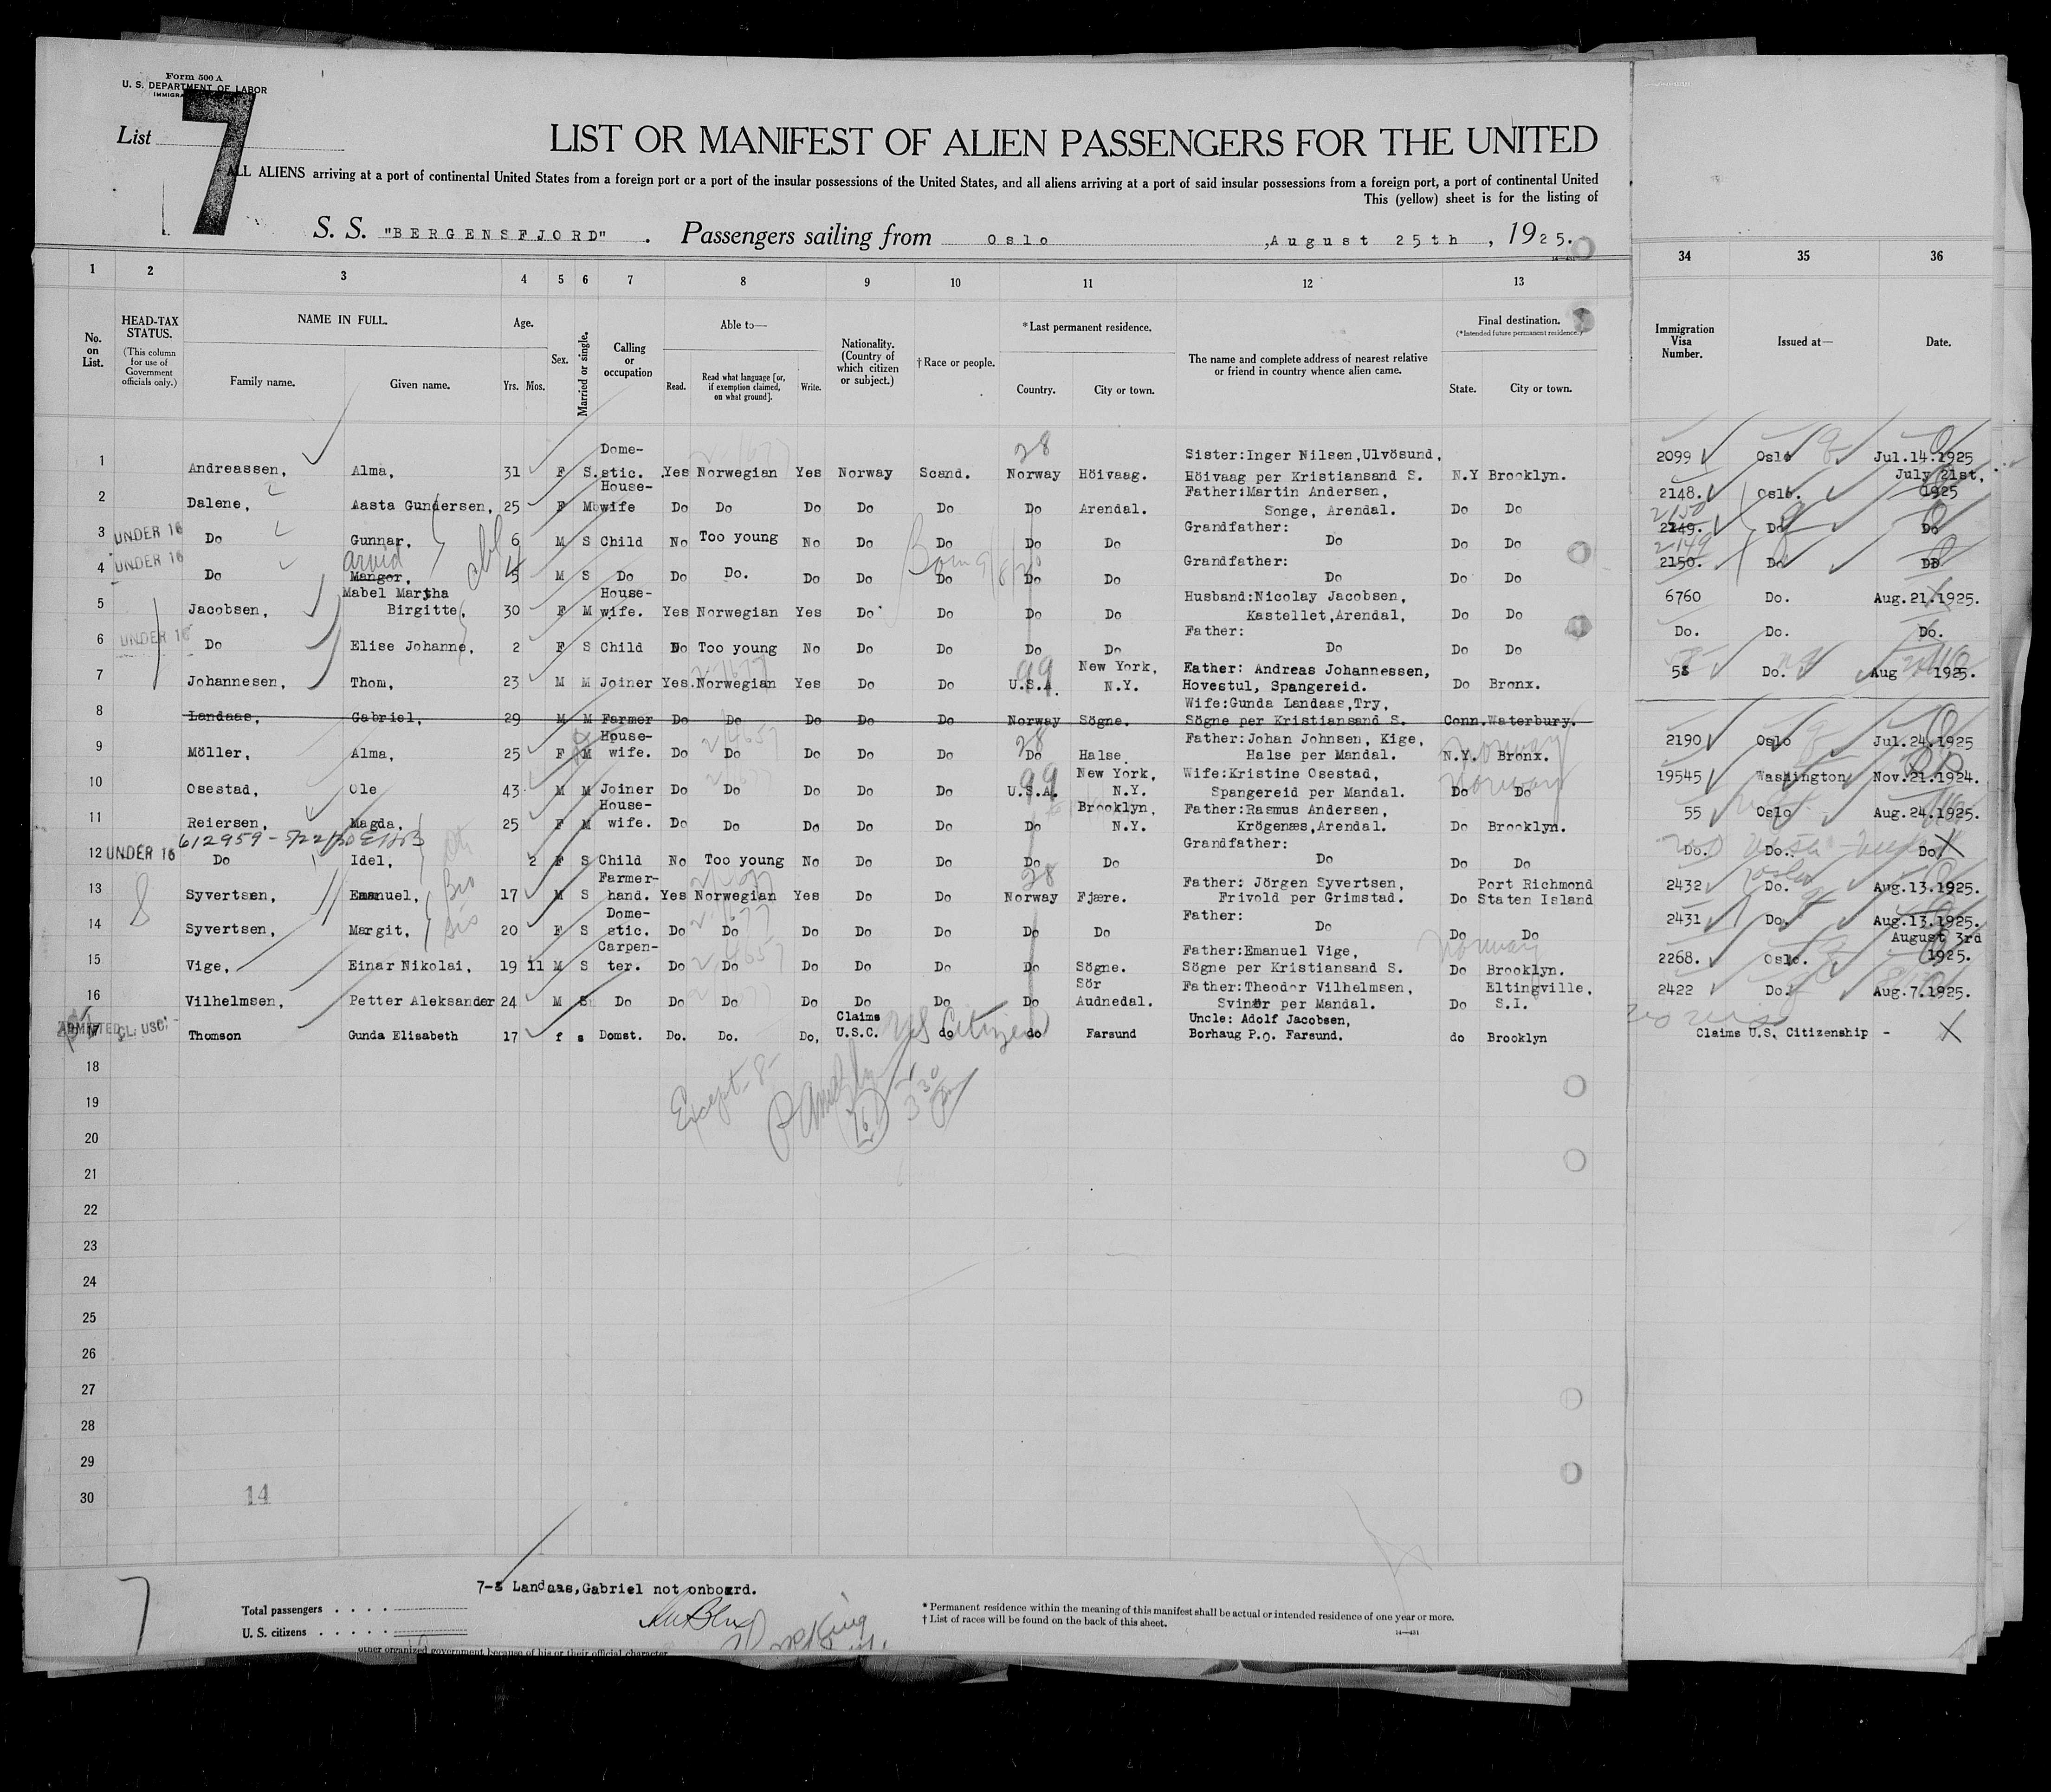 Form 500 A
U. S. DEPARTMENT OF LABOR
List 7
LIST OR MANIFEST OF ALIEN PASSENGERS FOR THE UNITED
ALL ALIENS arriving at a port of continental United States from a foreign port or a port of the insular possessions of the United States, and all aliens arriving at a port of said insular possessions from a foreign port, a port of continental United
This (yellow) sheet is for the listing of
S. S. "BERGENSFJORD" . Passengers sailing from Oslo ,August 25th , 1925.
1 2 3 4 5 6 7 8 9 10 11 12 13 34 35 36
No. on List. HEAD-TAX STATUS. (This column for use of Government officials only.) NAME IN FULL. Family name. Given name. Age. Yrs. Mos. Sex. Married or single. Calling or occupation Able to— Read. Read what language [or, if exemption claimed, on what ground]. Write. Nationality. (Country of which citizen or subject.) † Race or people. *Last permanent residence. Country. City or town. The name and complete address of nearest relative or friend in country whence alien came. Final destination. (*Intended future permanent residence.) State. City or town. Immigration Visa Number. Issued at— Date.
1 Andreassen, Alma, 31 F S. Dome-stic. Yes Norwegian Yes Norway Scand. 28 Norway Höivaag. Sister:Inger Nilsen,Ulvösund, Höivaag per Kristiansand S. N.Y Brooklyn. 2099 Oslo Jul.14.1925
2 Dalene, Aasta Gundersen, 25 F M House-wife Do Do Do Do Do Do Arendal. Father:Martin Andersen, Songe, Arendal. Do Do 2148. Oslo. July 21st, 1925
3 UNDER 16 Do Gunnar, 6 M S Child No Too young No Do Do Do Do Grandfather: Do Do Do 2149. 2150 Do Do
4 UNDER 16 Do Manger, Arvid 5 4 M S Do Do Do. Do Do Do Do Do Grandfather: Do Do Do 2150. 2149 Do Do
5 Jacobsen, Mabel Martha Birgitte, 30 F M House-wife. Yes Norwegian Yes Do Do Do Do Husband:Nicolay Jacobsen, Kastellet,Arendal, Do Do 6760 Do. Aug.21.1925.
6 UNDER 16 Do Elise Johanne, 2 F S Child Do Too young No Do Do Do Do Father: Do Do Do Do. Do. Do.
7 Johannesen, Thom, 23 M M Joiner Yes. Norwegian Yes Do Do 99 U.S.A. New York, N.Y. Father: Andreas Johannessen, Hovestul, Spangereid. Do Bronx. Do. Aug 1925.
8 Landaas, Gabriel, 29 M M Farmer Do Do Do Do Do Norway Sögne. Wife:Gunda Landaas,Try, Sögne per Kristiansand S. Conn.Waterbury.
9 Möller, Alma, 25 F M House-wife. Do Do Do Do Do 28 Do Halse. Father:Johan Johnsen, Kige, Halse per Mandal. N.Y. Bronx. Norway 2190 Oslo Jul.24.1925
10 Osestad, Ole 43 M M Joiner Do Do Do Do Do 99 U.S.A. New York, N.Y. Wife:Kristine Osestad, Spangereid per Mandal. Do Do Norway 19545 Washington Nov.21.1924.
11 Reiersen, Magda, 25 F M House-wife. Do Do Do Do Do Do Brooklyn, N.Y. Father:Rasmus Andersen, Krögenæs,Arendal. Do Brooklyn. 55 Oslo Aug.24.1925.
12 UNDER 16 Do Idel, 2 F S Child No Too young No Do Do Do Do Grandfather: Do Do Do Do. Do. Do
13 Syvertsen, Emanuel, 17 M S Farmer-hand. Yes Norwegian Yes Do Do 28 Norway Fjære. Father: Jörgen Syvertsen, Frivold per Grimstad. Do Port Richmond Staten Island 2432 Do. Aug.13.1925.
14 Syvertsen, Margit, 20 F S Dome-stic. Do Do Do Do Do Do Do Father: Do Do Do 2431 Do. Aug.13.1925.
15 Vige, Einar Nikolai, 19 11 M S Carpen-ter. Do Do Do Do Do Do Sögne. Father:Emanuel Vige, Sögne per Kristiansand S. Do Brooklyn. Norway 2268. Oslo. August 3rd 1925.
16 Vilhelmsen, Petter Aleksander 24 M S Do Do Do Do Do Do Do Sör Audnedal. Father:Theodor Vilhelmsen, Svinör per Mandal. Do Eltingville, S.I. 2422 Do. Aug.7.1925.
17 ADMITTED CL. USC. Thomson Gunda Elisabeth 17 f s Domst. Do. Do. Do, Claims U.S.C. do do Farsund Uncle: Adolf Jacobsen, Borhaug P.o. Farsund. do Brooklyn US Citizen Claims U.S. Citizenship -
18
19 Except 8
20
21
22
23
24
25
26
27
28
29
30
14
7-8 Landaas,Gabriel not onboard.
7
Total passengers
U. S. citizens
* Permanent residence within the meaning of this manifest shall be actual or intended residence of one year or more.
† List of races will be found on the back of this sheet.
other organized government because of his or their official character